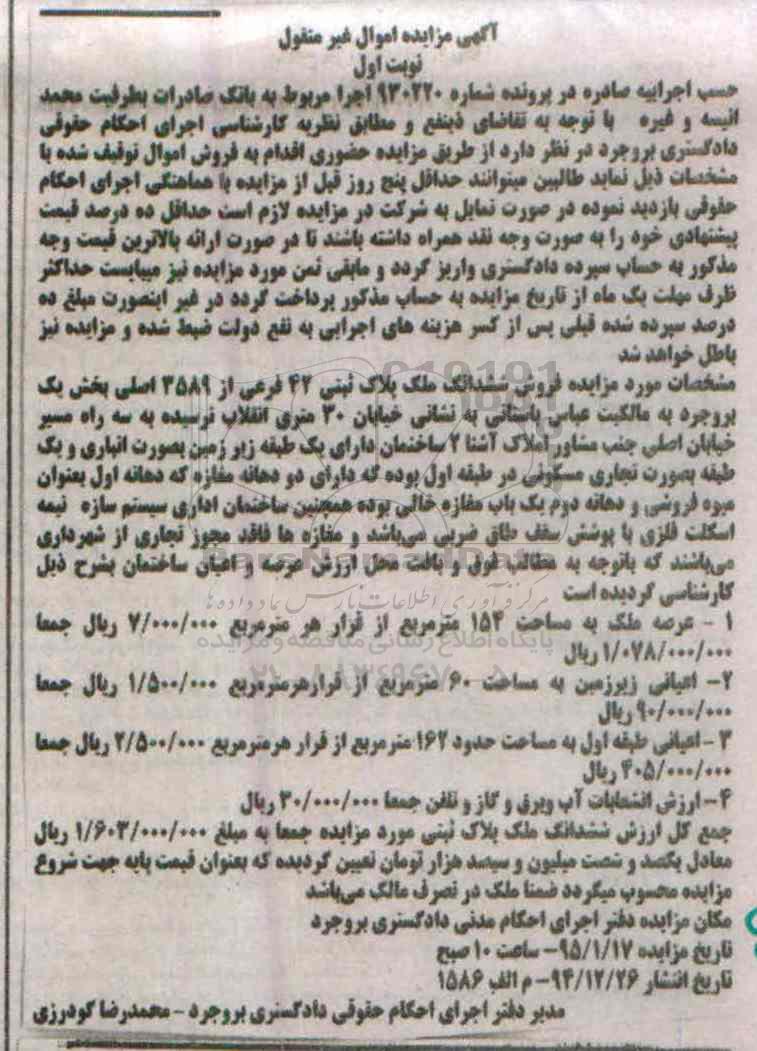 آگهی مزایده اموال غیر منقول
نوبت اول
حسب اجراییه صادره در پرونده شماره ۹۳۰۲۲۰ اجرا مربوط به بانک صادرات بطرفیت محمد
انیسه و غیره با توجه به تقاضای ذینفع و مطابق نظریه کارشناسی اجرای احکام حقوقی
دادگستری بروجرد در نظر دارد از طریق مزایده حضوری اقدام به فروش اموال توقیف شده با
مشخصات ذیل نماید طالبین میتوانند حداقل پنج روز قبل از مزایده با هماهنگی اجرای احکام
حقوقی بازدید نموده در صورت تمایل به شرکت در مزایده لازم است حداقل ده درصد قیمت
پیشنهادی خود را به صورت وجه نقد همراه داشته باشند تا در صورت ارائه بالاترین قیمت وجه
مذکور به حساب سپرده دادگستری واریز گردد و مابقی ثمن مورد مزایده نیز میبایست حداکثر
ظرف مهلت یک ماه از تاریخ مزایده به حساب مذکور پرداخت گردد در غیر اینصورت مبلغ ده
درصد سپرده شده قبلی پس از کسر هزینه های اجرایی به نفع دولت ضبط شده و مزایده نیز
باطل خواهد شد
مشخصات مورد مزایده فروش ششدانگ ملک پلاک ثبتی ۴۲ فرعی از ۳۵۸۹ اصلی بخش یک
بروجرد به مالکیت عباس باستانی به نشانی خیابان ۳۰ متری انقلاب نرسیده به سه راه مسیر
خیابان اصلی جنب مشاور املاک آشنا ۲ ساختمان دارای یک طبقه زیر زمین بصورت انباری و یک
طبقه بصورت تجاری مسکونی در طبقه اول بوده که دارای دو دهانه مغازه که دهانه اول بعنوان
میوه فروشی و دهانه دوم یک باب مغازه خالی بوده همچنین ساختمان اداری سیستم سازه نیمه
اسکلت فلزی با پوشش سقف طاق ضربی می‌باشد و مغازه ها فاقد مجوز تجاری از شهرداری
می‌باشند که باتوجه به مطالب فوق و بافت محل ارزش عرصه و اعیان ساختمان بشرح ذیل
کارشناسی گردیده است
ParsNamadData
مرکز فرآوری اطلاعات پارس نماد داده ها
۱ - عرصه ملک به مساحت ۱۵۴ مترمربع از قرار هر مترمربع ۷/۰۰۰/۰۰۰ ریال جمعا
پایگاه اطلاع رسانی مناقصه و مزایده
۱/۰۷۸/۰۰۰/۰۰۰ ریال
۲- اعیانی زیرزمین به مساحت ۶۰ مترمربع از قرارهرمترمربع ۱/۵۰۰/۰۰۰ ریال جمعا
۹۰/۰۰۰/۰۰۰ ریال
۳ - اعیانی طبقه اول به مساحت حدود ۱۶۲ مترمربع از قرار هرمترمربع ۲/۵۰۰/۰۰۰ ریال جمعا
۴۰۵/۰۰۰/۰۰۰ ریال
۴- ارزش انشعابات آب وبرق و گاز و تلفن جمعا ۳۰/۰۰۰/۰۰۰ ریال
جمع کل ارزش ششدانگ ملک پلاک ثبتی مورد مزایده جمعا به مبلغ ۱/۶۰۳/۰۰۰/۰۰۰ ریال
معادل یکصد و شصت میلیون و سیصد هزار تومان تعیین گردیده که بعنوان قیمت پایه جهت شروع
مزایده محسوب میگردد ضمنا ملک در تصرف مالک می‌باشد
مکان مزایده دفتر اجرای احکام مدنی دادگستری بروجرد
تاریخ مزایده ۹۵/۱/۱۷- ساعت ۱۰ صبح
تاریخ انتشار ۹۴/۱۲/۲۶- م الف ۱۵۸۶
مدیر دفتر اجرای احکام حقوقی دادگستری بروجرد - محمدرضا گودرزی